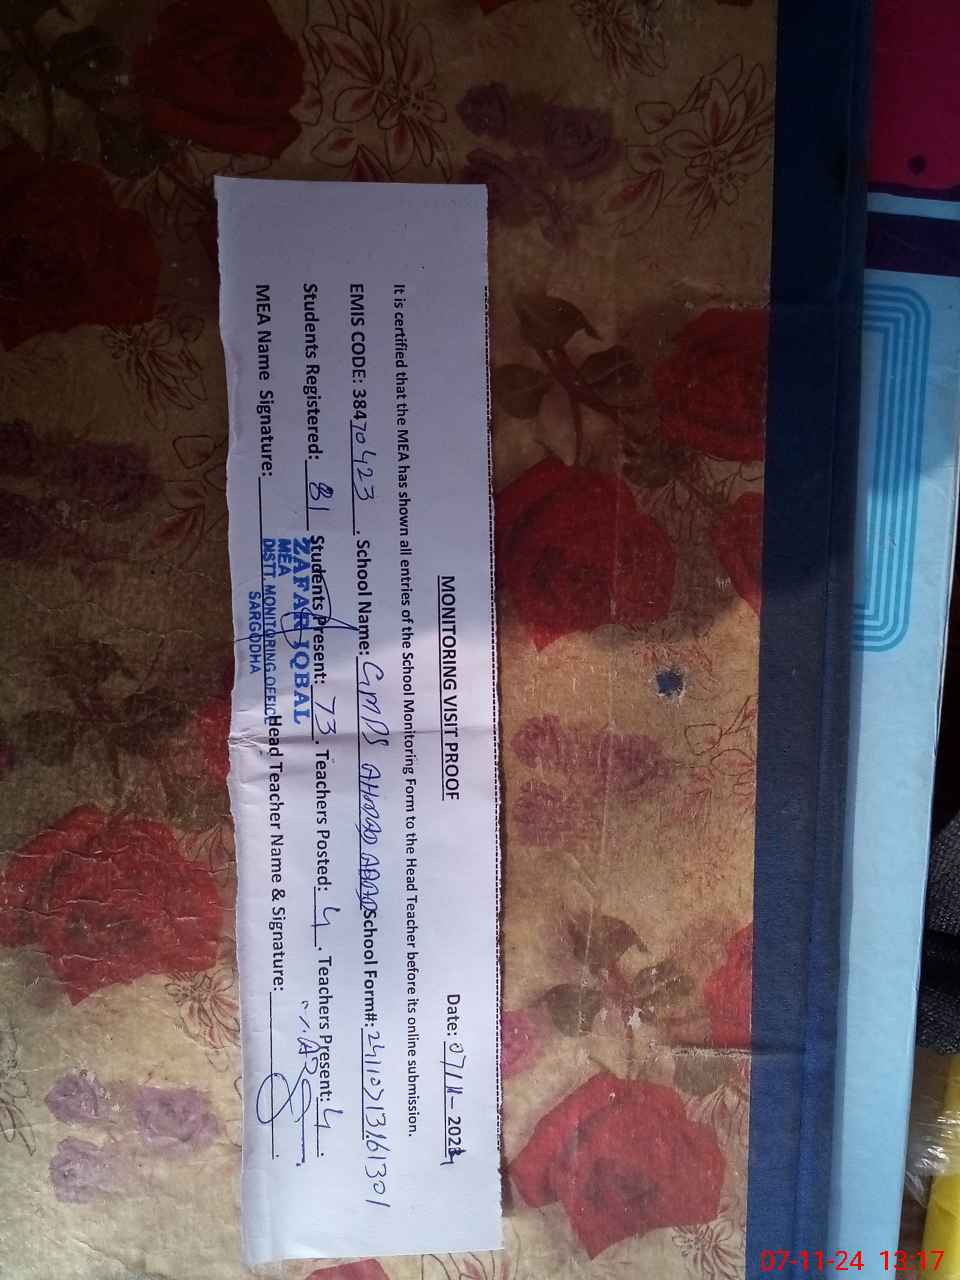 MONITORING VISIT PROOF Date: 07/11-2024
It is certified that the MEA has shown all entries of the School Monitoring Form to the Head Teacher before its online submission.
EMIS CODE: 38470423. School Name: GMPS AHMAD ABAD School Form#: 24110713161301
Students Registered: 81 Students Present: 73. Teachers Posted: 4. Teachers Present: 4.
MEA Name Signature: Head Teacher Name & Signature:
ZAFAR IQBAL
MEA
DISTT. MONITORING OFFICE
SARGODHA
07-11-24 13:17